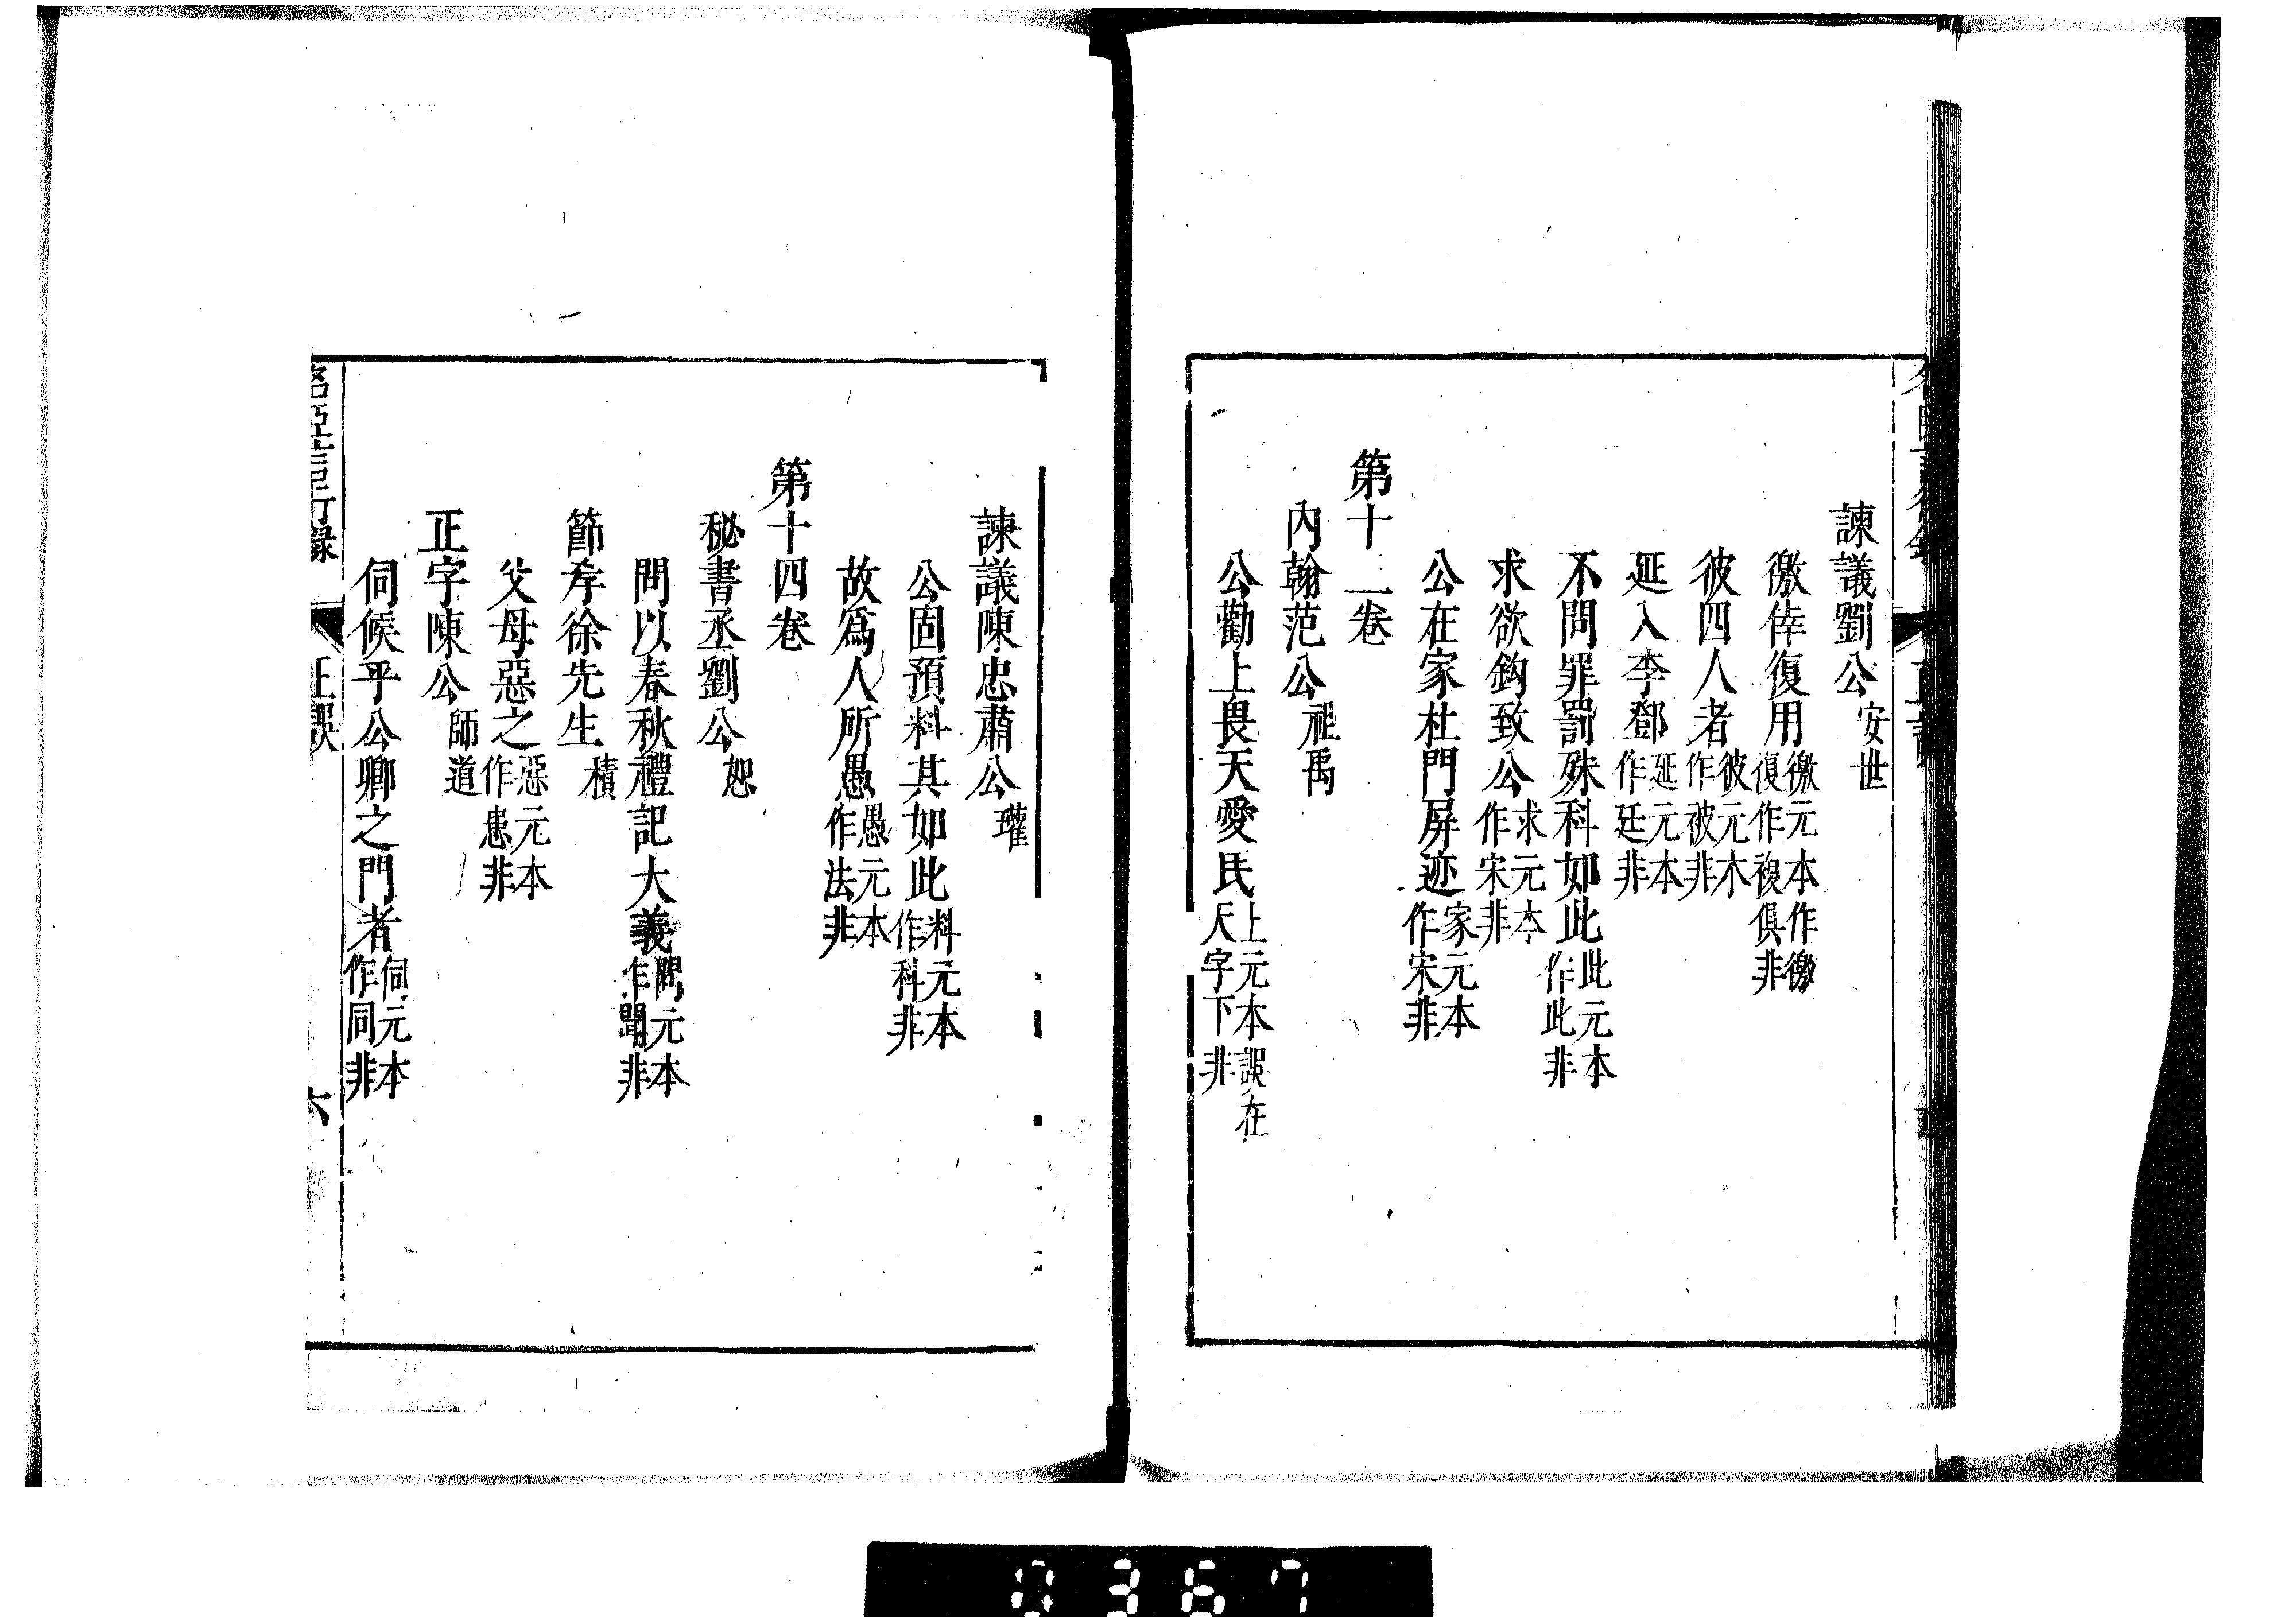 諫議劉公安世
徼倖復用徼元本作徼復作複俱非
彼四人者彼元本作被非
延入李鄧延元本作廷非
不問罪罰殊科如此此元本作此非
求欲鈎致公求元本作宋非
公在家杜門屏迹家元本作宋非
第十二卷
內翰范公祖禹
公勸上畏天愛民上元本誤在天字下非
諫議陳忠肅公瓘
公固預料其如此料元本作科非
故爲人所愚愚元本作法非
第十四卷
秘書丞劉公恕
問以春秋禮記大義問元本作聞非
節孝徐先生積
父母惡之惡元本作患非
正字陳公師道
伺候乎公卿之門者伺元本作同非
名臣言行錄 正誤 六
0367